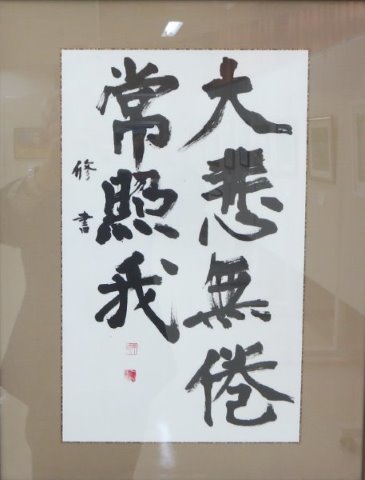 大悲無倦
常照我
修書